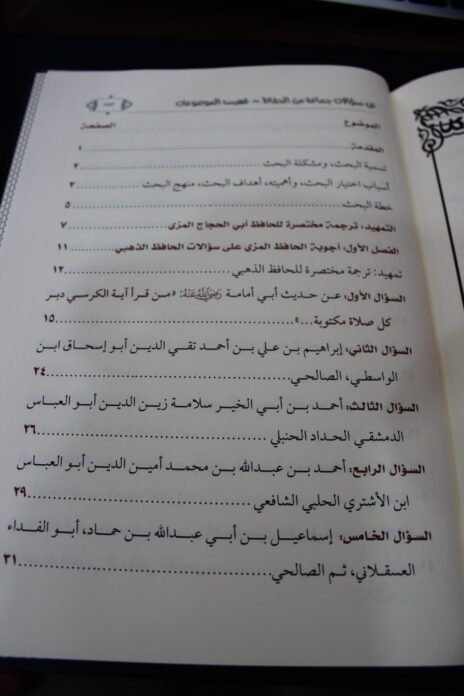 عن سؤالات جماعة من الحفاظ – فهرس الموضوعات
الموضوع الصفحة
المقدمة ١
تسمية البحث، ومشكلة البحث ٢
أسباب اختيار البحث، وأهميته، أهداف البحث، منهج البحث ٣
خطة البحث ٥
التمهيد: ترجمة مختصرة للحافظ أبي الحجاج المزي ٧
الفصل الأول: أجوبة الحافظ المزي على سؤالات الحافظ الذهبي ١١
تمهيد: ترجمة مختصرة للحافظ الذهبي ١٢
السؤال الأول: عن حديث أبي أمامة رَضِيَ اللَّهُ عَنْهُ: «من قرأ آية الكرسي دبر
كل صلاة مكتوبة...» ١٥
السؤال الثاني: إبراهيم بن علي بن أحمد تقي الدين أبو إسحاق ابن
الواسطي، الصالحي ٢٤
السؤال الثالث: أحمد بن أبي الخير سلامة زين الدين أبو العباس
الدمشقي الحداد الحنبلي ٢٦
السؤال الرابع: أحمد بن عبدالله بن محمد أمين الدين أبو العباس
ابن الأشتري الحلبي الشافعي ٢٩
السؤال الخامس: إسماعيل بن أبي عبدالله بن حماد، أبو الفداء
العسقلاني، ثم الصالحي ٣١